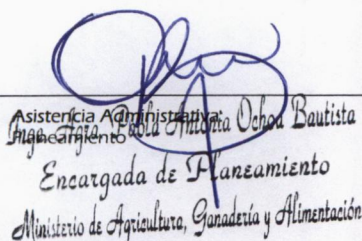 Asistencia Administrativa:
Planeamiento
Inga. Agra. Pabla Antonia Ochoa Bautista
Encargada de Planeamiento
Ministerio de Agricultura, Ganadería y Alimentación